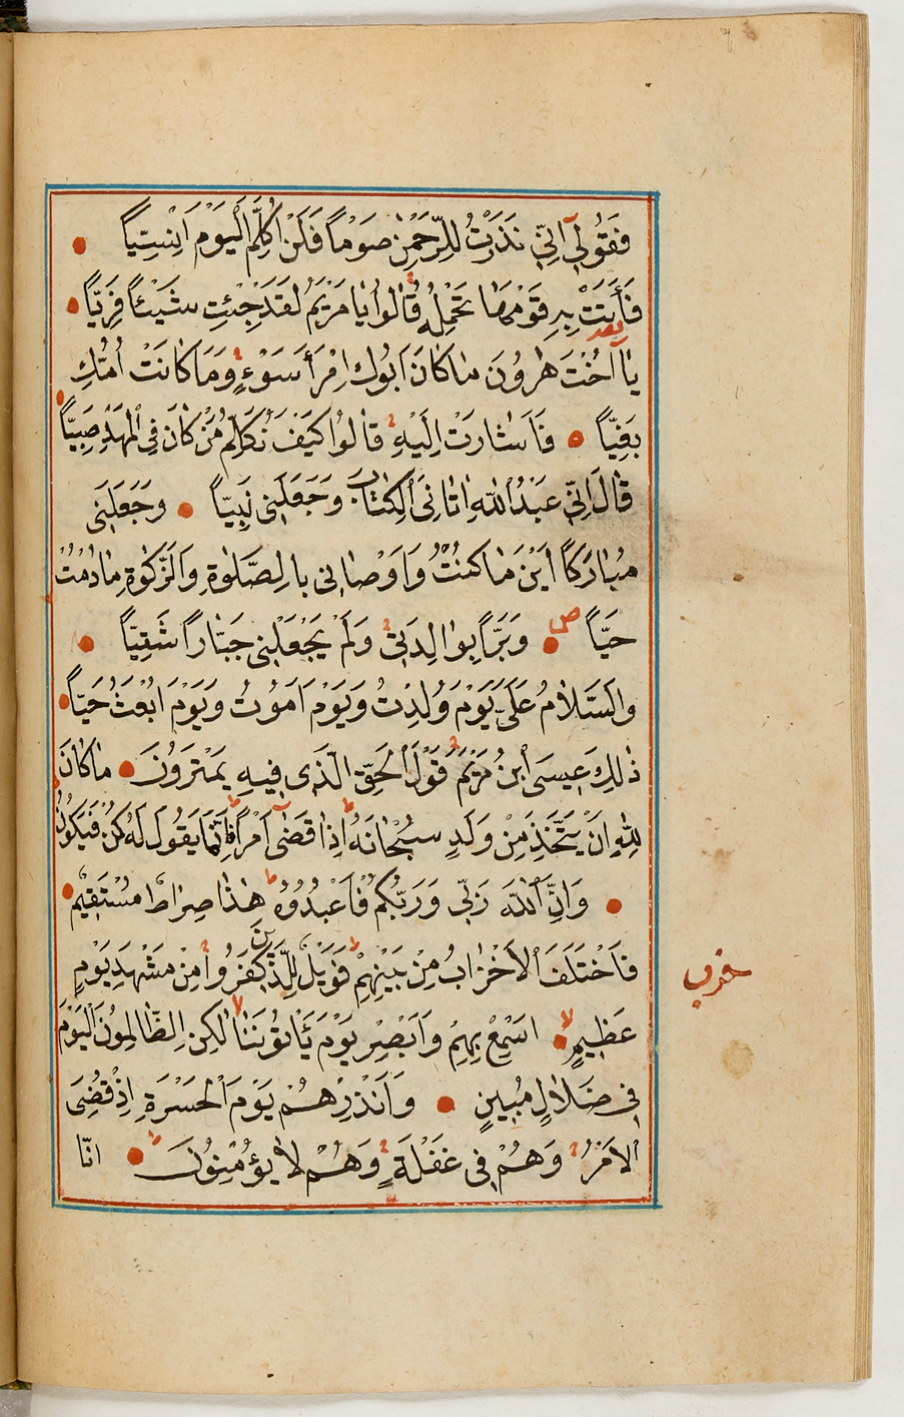 فَقُولِٓي اِنِّي نَذَرْتُ لِلرَّحْمٰنِ صَوْمًا فَلَنْ اُكَلِّمَ الْيَوْمَ اِنْسِيًّا
فَاَتَتْ بِهِ قَوْمَهَا تَحْمِلُهُ قَالُوا يَا مَرْيَمُ لَقَدْ جِئْتِ شَيْئًا فَرِيًّا
يَٓا اُخْتَ هٰرُونَ مَا كَانَ اَبُوكِ امْرَاَ سَوْءٍ وَمَا كَانَتْ اُمُّكِ
بَغِيًّا فَاَشَارَتْ اِلَيْهِ قَالُوا كَيْفَ نُكَلِّمُ مَنْ كَانَ فِي الْمَهْدِ صَبِيًّا
قَالَ اِنِّي عَبْدُ اللّٰهِ اٰتَانِيَ الْكِتَابَ وَجَعَلَنِي نَبِيًّا وَجَعَلَنِي
مُبَارَكًا اَيْنَ مَا كُنْتُ وَاَوْصَانِي بِالصَّلٰوةِ وَالزَّكٰوةِ مَا دُمْتُ
حَيًّا ص وَبَرًّا بِوَالِدَتِي وَلَمْ يَجْعَلْنِي جَبَّارًا شَقِيًّا
وَالسَّلَامُ عَلَيَّ يَوْمَ وُلِدْتُ وَيَوْمَ اَمُوتُ وَيَوْمَ اُبْعَثُ حَيًّا
ذٰلِكَ عِيسَى ابْنُ مَرْيَمَ قَوْلَ الْحَقِّ الَّذِي فِيهِ يَمْتَرُونَ مَا كَانَ
لِلّٰهِ اَنْ يَتَّخِذَ مِنْ وَلَدٍ سُبْحَانَهُ اِذَا قَضٰٓى اَمْرًا فَاِنَّمَا يَقُولُ لَهُ كُنْ فَيَكُونُ
وَاِنَّ اللّٰهَ رَبِّي وَرَبُّكُمْ فَاعْبُدُوهُ هٰذَا صِرَاطٌ مُسْتَقِيمٌ
فَاخْتَلَفَ الْاَحْزَابُ مِنْ بَيْنِهِمْ فَوَيْلٌ لِلَّذِينَ كَفَرُوا مِنْ مَشْهَدِ يَوْمٍ
حزب
عَظِيمٍ اَسْمِعْ بِهِمْ وَاَبْصِرْ يَوْمَ يَأْتُونَنَا لٰكِنِ الظَّالِمُونَ الْيَوْمَ
فِي ضَلَالٍ مُبِينٍ وَاَنْذِرْهُمْ يَوْمَ الْحَسْرَةِ اِذْ قُضِيَ
الْاَمْرُ وَهُمْ فِي غَفْلَةٍ وَهُمْ لَا يُؤْمِنُونَ اِنَّا